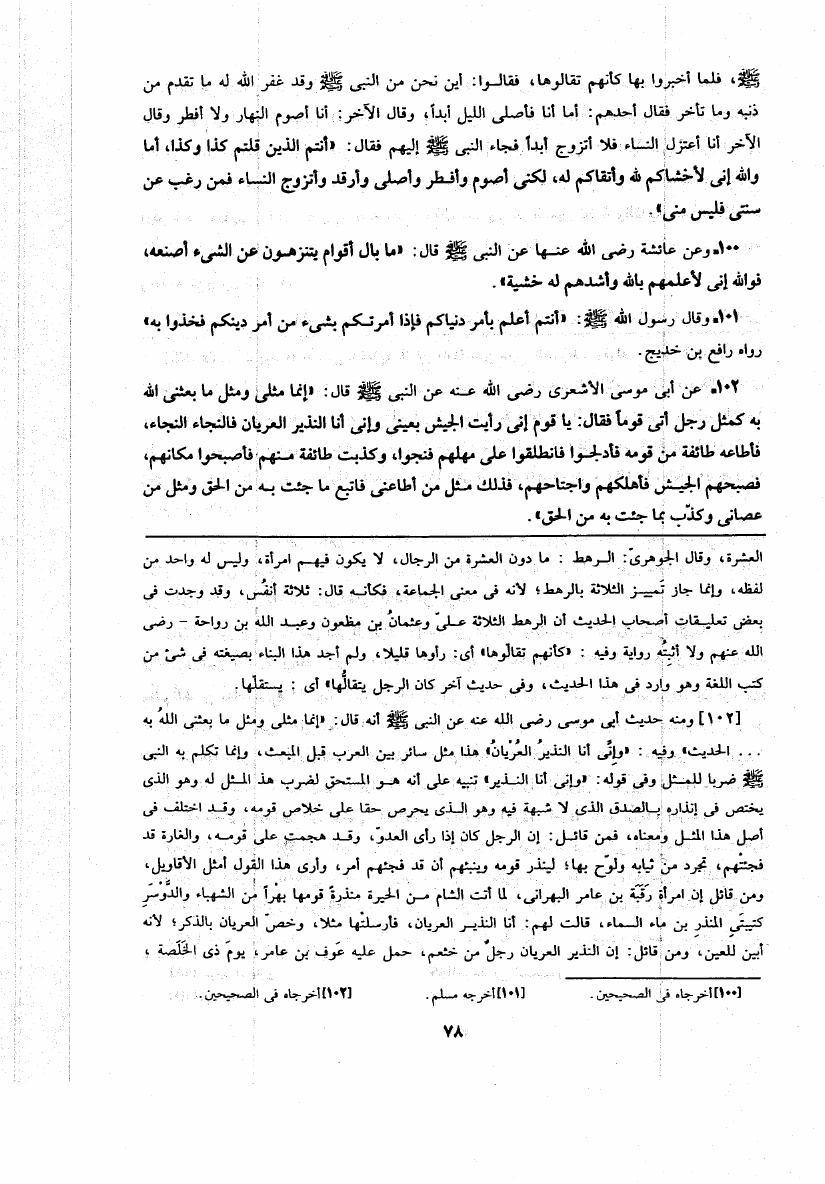 ﷺ، فلما أخبروا بها كأنهم تقالوها، فقالـوا: أين نحن من النبى ﷺ وقد غفر الله له ما تقدم من
ذنبه وما تأخر فقال أحدهم: أما أنا فأصلى الليل أبداً، وقال الآخر: أنا أصوم النهار ولا أفطر وقال
الآخر أنا أعتزل النساء فلا أتزوج أبداً فجاء النبى ﷺ إليهم فقال: «أنتم الذين قلتم كذا وكذا، أما
والله إنى لأخشاكم لله وأتقاكم له، لكنى أصوم وأفطر وأصلى وأرقد وأتزوج النساء فمن رغب عن
سنتى فليس منى».
١٠٠ـ وعن عائشة رضى الله عنـها عن النبى ﷺ قال: «ما بال أقوام يتنزهـون عن الشىء أصنعه،
فوالله إنى لأعلمهم بالله وأشدهم له خشية».
١٠١ـ وقال رسول الله ﷺ: «أنتم أعلم بأمر دنياكم فإذا أمرتـكم بشىء من أمر دينكم فخذوا به»
رواه رافع بن خديج.
١٠٢ـ عن أبى موسى الأشعرى رضى الله عـنه عن النبى ﷺ قال: «إنما مثلى ومثل ما بعثنى الله
به كمثل رجل أتى قوماً فقال: يا قوم إنى رأيت الجيش بعينى وإنى أنا النذير العريان فالنجاء النجاء،
فأطاعه طائفة من قومه فأدلجـوا فانطلقوا على مهلهم فنجوا، وكذبت طائفة مـنهم فأصبحوا مكانهم،
فصبحهم الجيـش فأهلكهم واجتاحهم، فذلك مـثل من أطاعنى فاتبع ما جئت بـه من الحق ومثل من
عصانى وكذّب بما جئت به من الحق».
العشرة، وقال الجوهرىّ: الـرهط : ما دون العشرة من الرجال، لا يكون فيهـم امرأة، وليس له واحد من
لفظه، وإنما جاز تمييـز الثلاثة بالرهط؛ لأنه فى معنى الجماعة، فكأنـه قال: ثلاثة أنفُس، وقد وجدت فى
بعض تعليـقات أصحاب الحديث أن الرهط الثلاثة علـىّ وعثمانُ بن مظعون وعبـد الله بن رواحة - رضى
الله عنهم ولا أثبتُه رواية وفيه : «كأنهم تقالّوها» أى: رأوها قليلا، ولم أجد هذا البناء بصيغته فى شئ من
كتب اللغة وهو وارد فى هذا الحديث، وفى حديث آخر كان الرجل يتقالُّها» أى : يستقلّها.
[١٠٢] ومنه حديث أبى موسى رضى الله عنه عن النبى ﷺ أنه قال: «إنما مثلى ومثل ما بعثنى اللهُ به
... الحديث» وفيه : «وإنَّى أنا النذيرُ العُرْيانُ» هذا مثل سائر بين العرب قبل المبعث، وإنما تكلم به النبى
ﷺ ضربا للمـثل وفى قوله: «وإنى أنا النـذير» تنبيه على أنه هـو المستحق لضرب هذ المـثل له وهو الذى
يختص فى إنذاره بـالصدق الذى لا شبهة فيه وهو الـذى يحرص حقا على خلاص قومه، وقـد اختلف فى
أصل هذا المثـل ومعناه، فمن قائـل: إن الرجل كان إذا رأى العدوّ، وقـد هجمت على قومـه، والغارة قد
فجئتْهم، تجرد من ثيابه ولوّح بها؛ لينذر قومه وينبئهم أن قد فجئهم أمر، وأرى هذا القول أمثل الأقاويل،
ومن قائل إن امرأة رقَبَة بن عامر البهرانى، لما أتت الشام مـن الحيرة منذرةً قومها بهْراً من الشهباء والدَّوْسَرِ
كتيبتَىِ المنذرِ بن ماء السماء، قالت لهم: أنا النذيـر العريان، فأرسلتْها مثلا، وخصّ العريان بالذكر؛ لأنه
أبين للعين، ومن قائل: إن النذير العريان رجلٌ من خثعم، حمل عليه عَوف بن عامر، يومَ ذى الخَلَصة ،
[١٠٠] أخرجاه فى الصحيحين. [١٠١] أخرجه مسلم. [١٠٢] أخرجاه فى الصحيحين.
٧٨